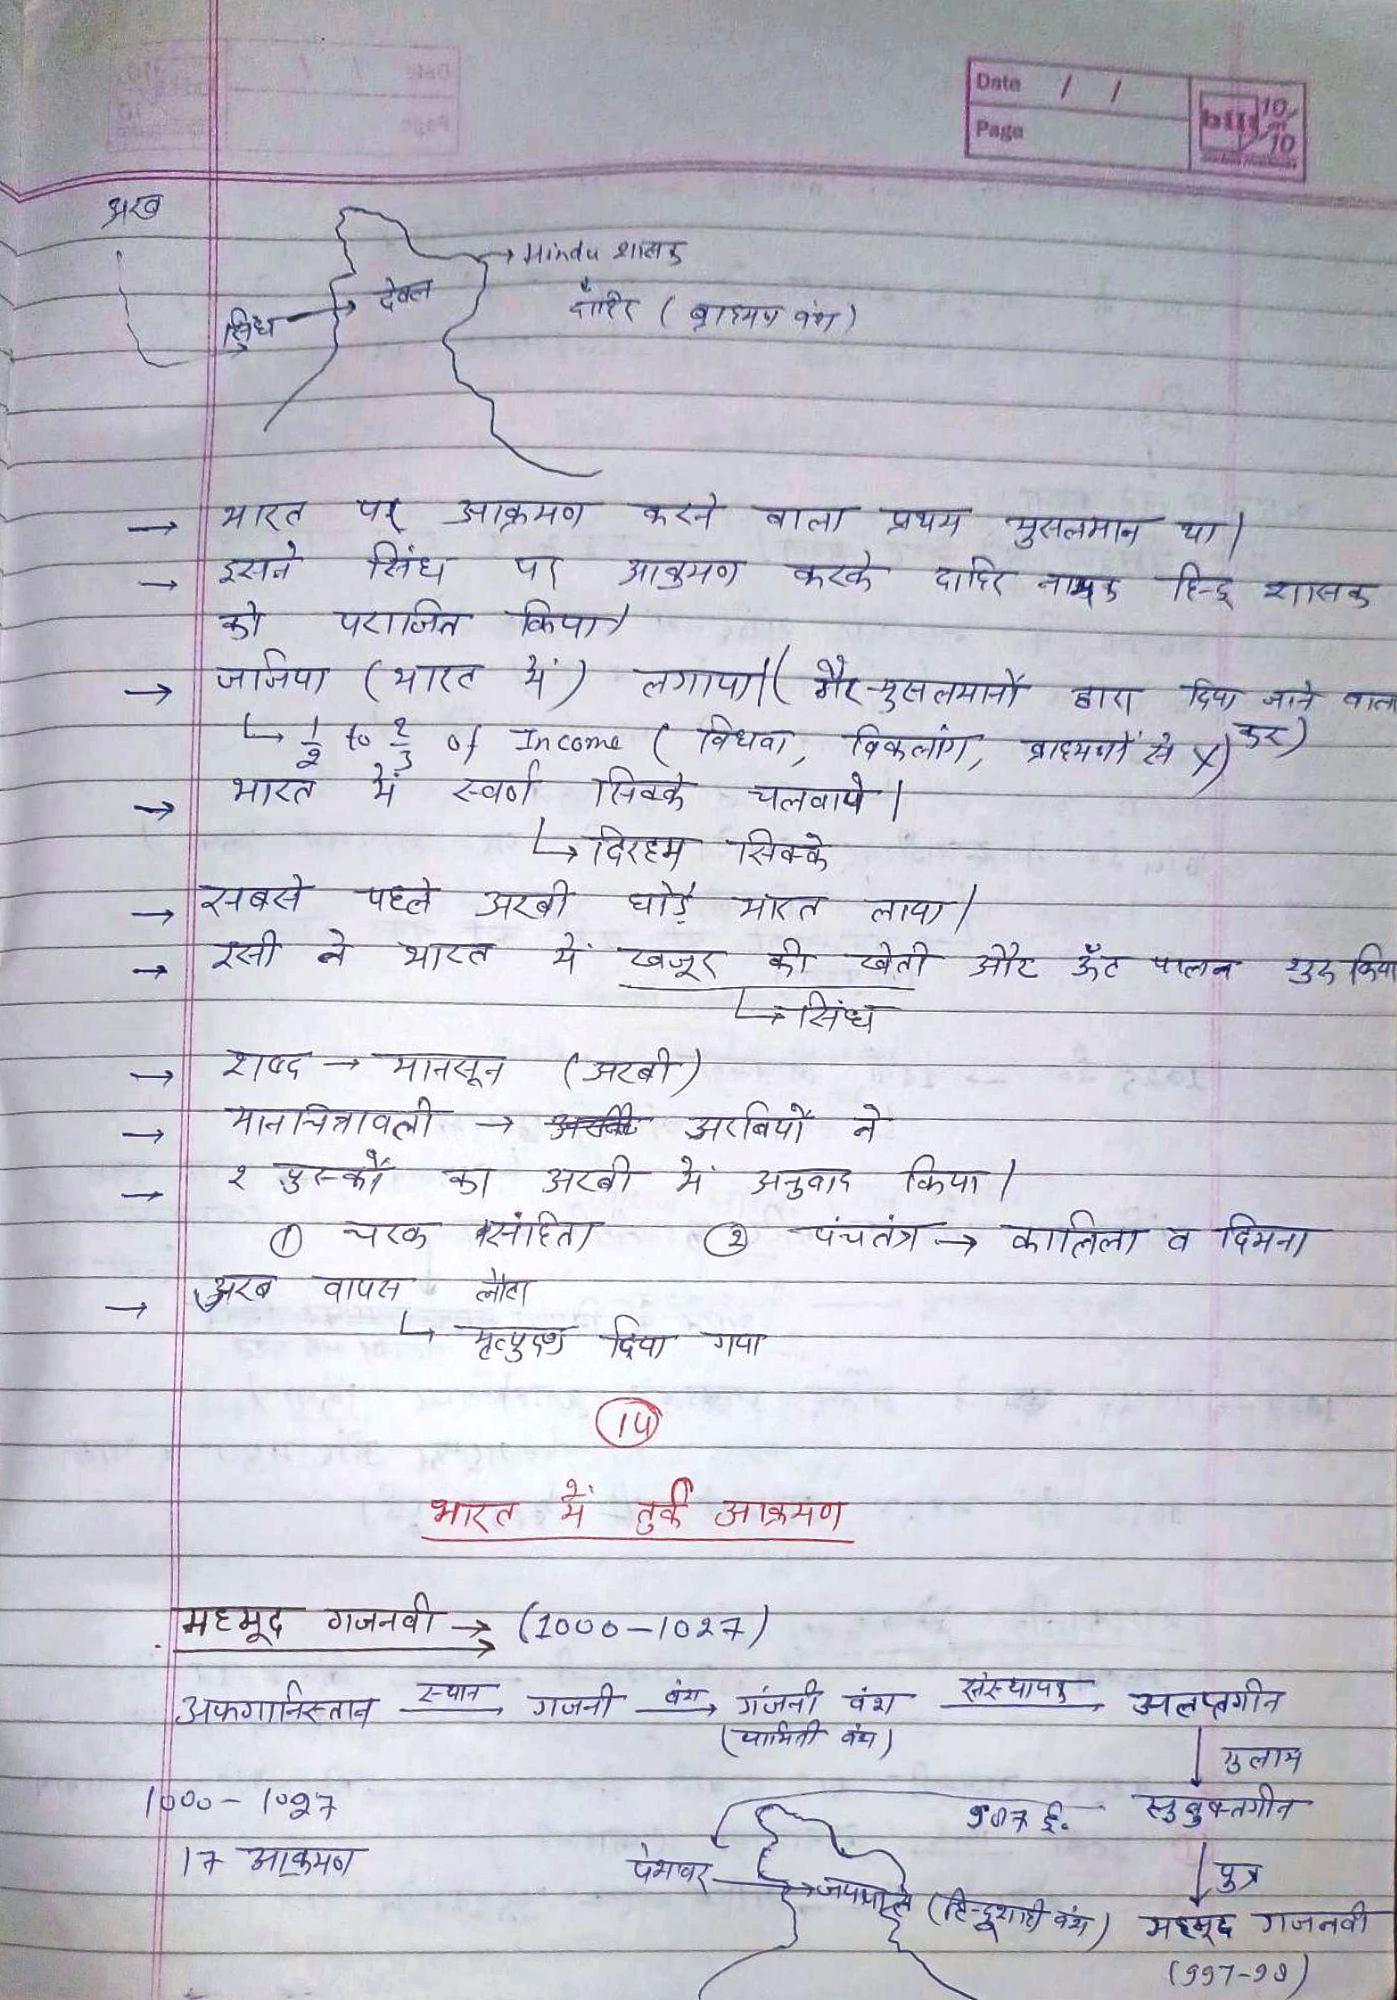 Date / /
Page
bilt 10/10
अरब
→ Hindu शासक
सिंध → देबल
दाहिर (ब्राह्मण वंश)
→ भारत पर आक्रमण करने वाला प्रथम मुसलमान था।
→ इसने सिंध पर आक्रमण करके दाहिर नामक हिन्दू शासक
को पराजित किया।
→ जजिया (भारत में) लगाया। (गैर-मुसलमानों द्वारा दिया जाने वाला
कर)
↳ 1/2 to 2/3 of Income (विधवा, विकलांग, ब्राह्मणों से X)
→ भारत में स्वर्ण सिक्के चलवाये।
↳ दिरहम सिक्के
→ सबसे पहले अरबी घोड़े भारत लाया।
→ इसी ने भारत में खजूर की खेती और ऊँट पालन शुरू किया
↳ सिंध
→ शब्द → मानसून (अरबी)
→ मानचित्रावली → अरबियों ने
→ 2 पुस्कों का अरबी में अनुवाद किया।
① चरक संहिता ② पंचतंत्र → कालिला व दिमना
→ अरब वापस लौटा
↳ मृत्युदण्ड दिया गया
14
भारत में तुर्क आक्रमण
महमूद गजनवी → (1000-1027)
अफगानिस्तान स्थान → गजनी वंश → गंजनी वंश संस्थापक → अलप्तगीन
(यामिनी वंश)
↓ गुलाम
1000-1027
987 ई. सुबुक्तगीन
17 आक्रमण
पेशावर → जयपाल (हिन्दूशाही वंश)
↓ पुत्र
महमूद गजनवी
(997-98)